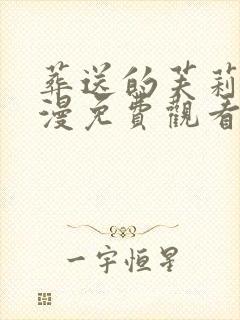 葬送的芙莉
漫免費觀看
一宇恒星